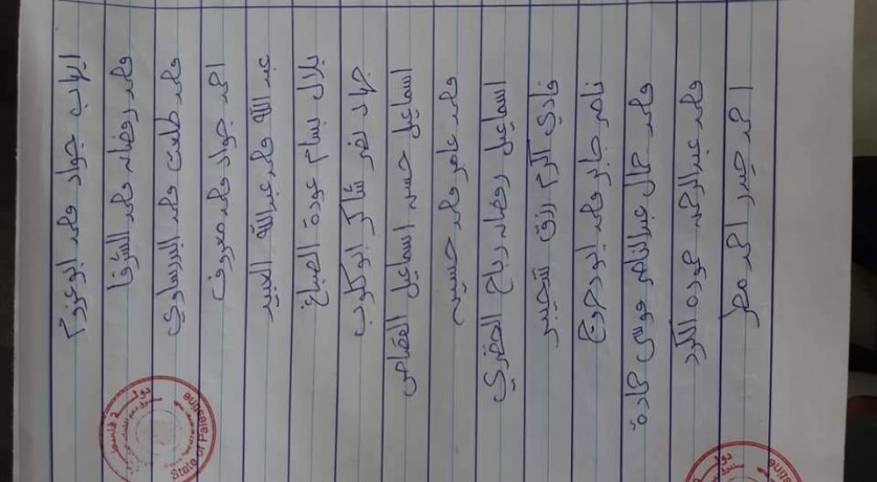 ايهاب جواد محمد ابو عزوم
محمد رمضان محمد الشرفا
محمد طلعت محمد
احمد جواد محمد معروف
عبد الله محمد عبد الله
بلال بسام عودة الصباغ
جهاد نصر شاكر ابو كلوب
اسماعيل حسن اسماعيل القصاص
محمد عامر محمد حسين
اسماعيل رمضان رباح
فادي اكرم رزق شحيبر
ناصر جابر محمد ابو دحروج
محمد جمال عبد الناصر موسى حمادة
محمد عبد الرحمن حمودة الكرد
احمد حيدر احمد مطر
State of Palestine